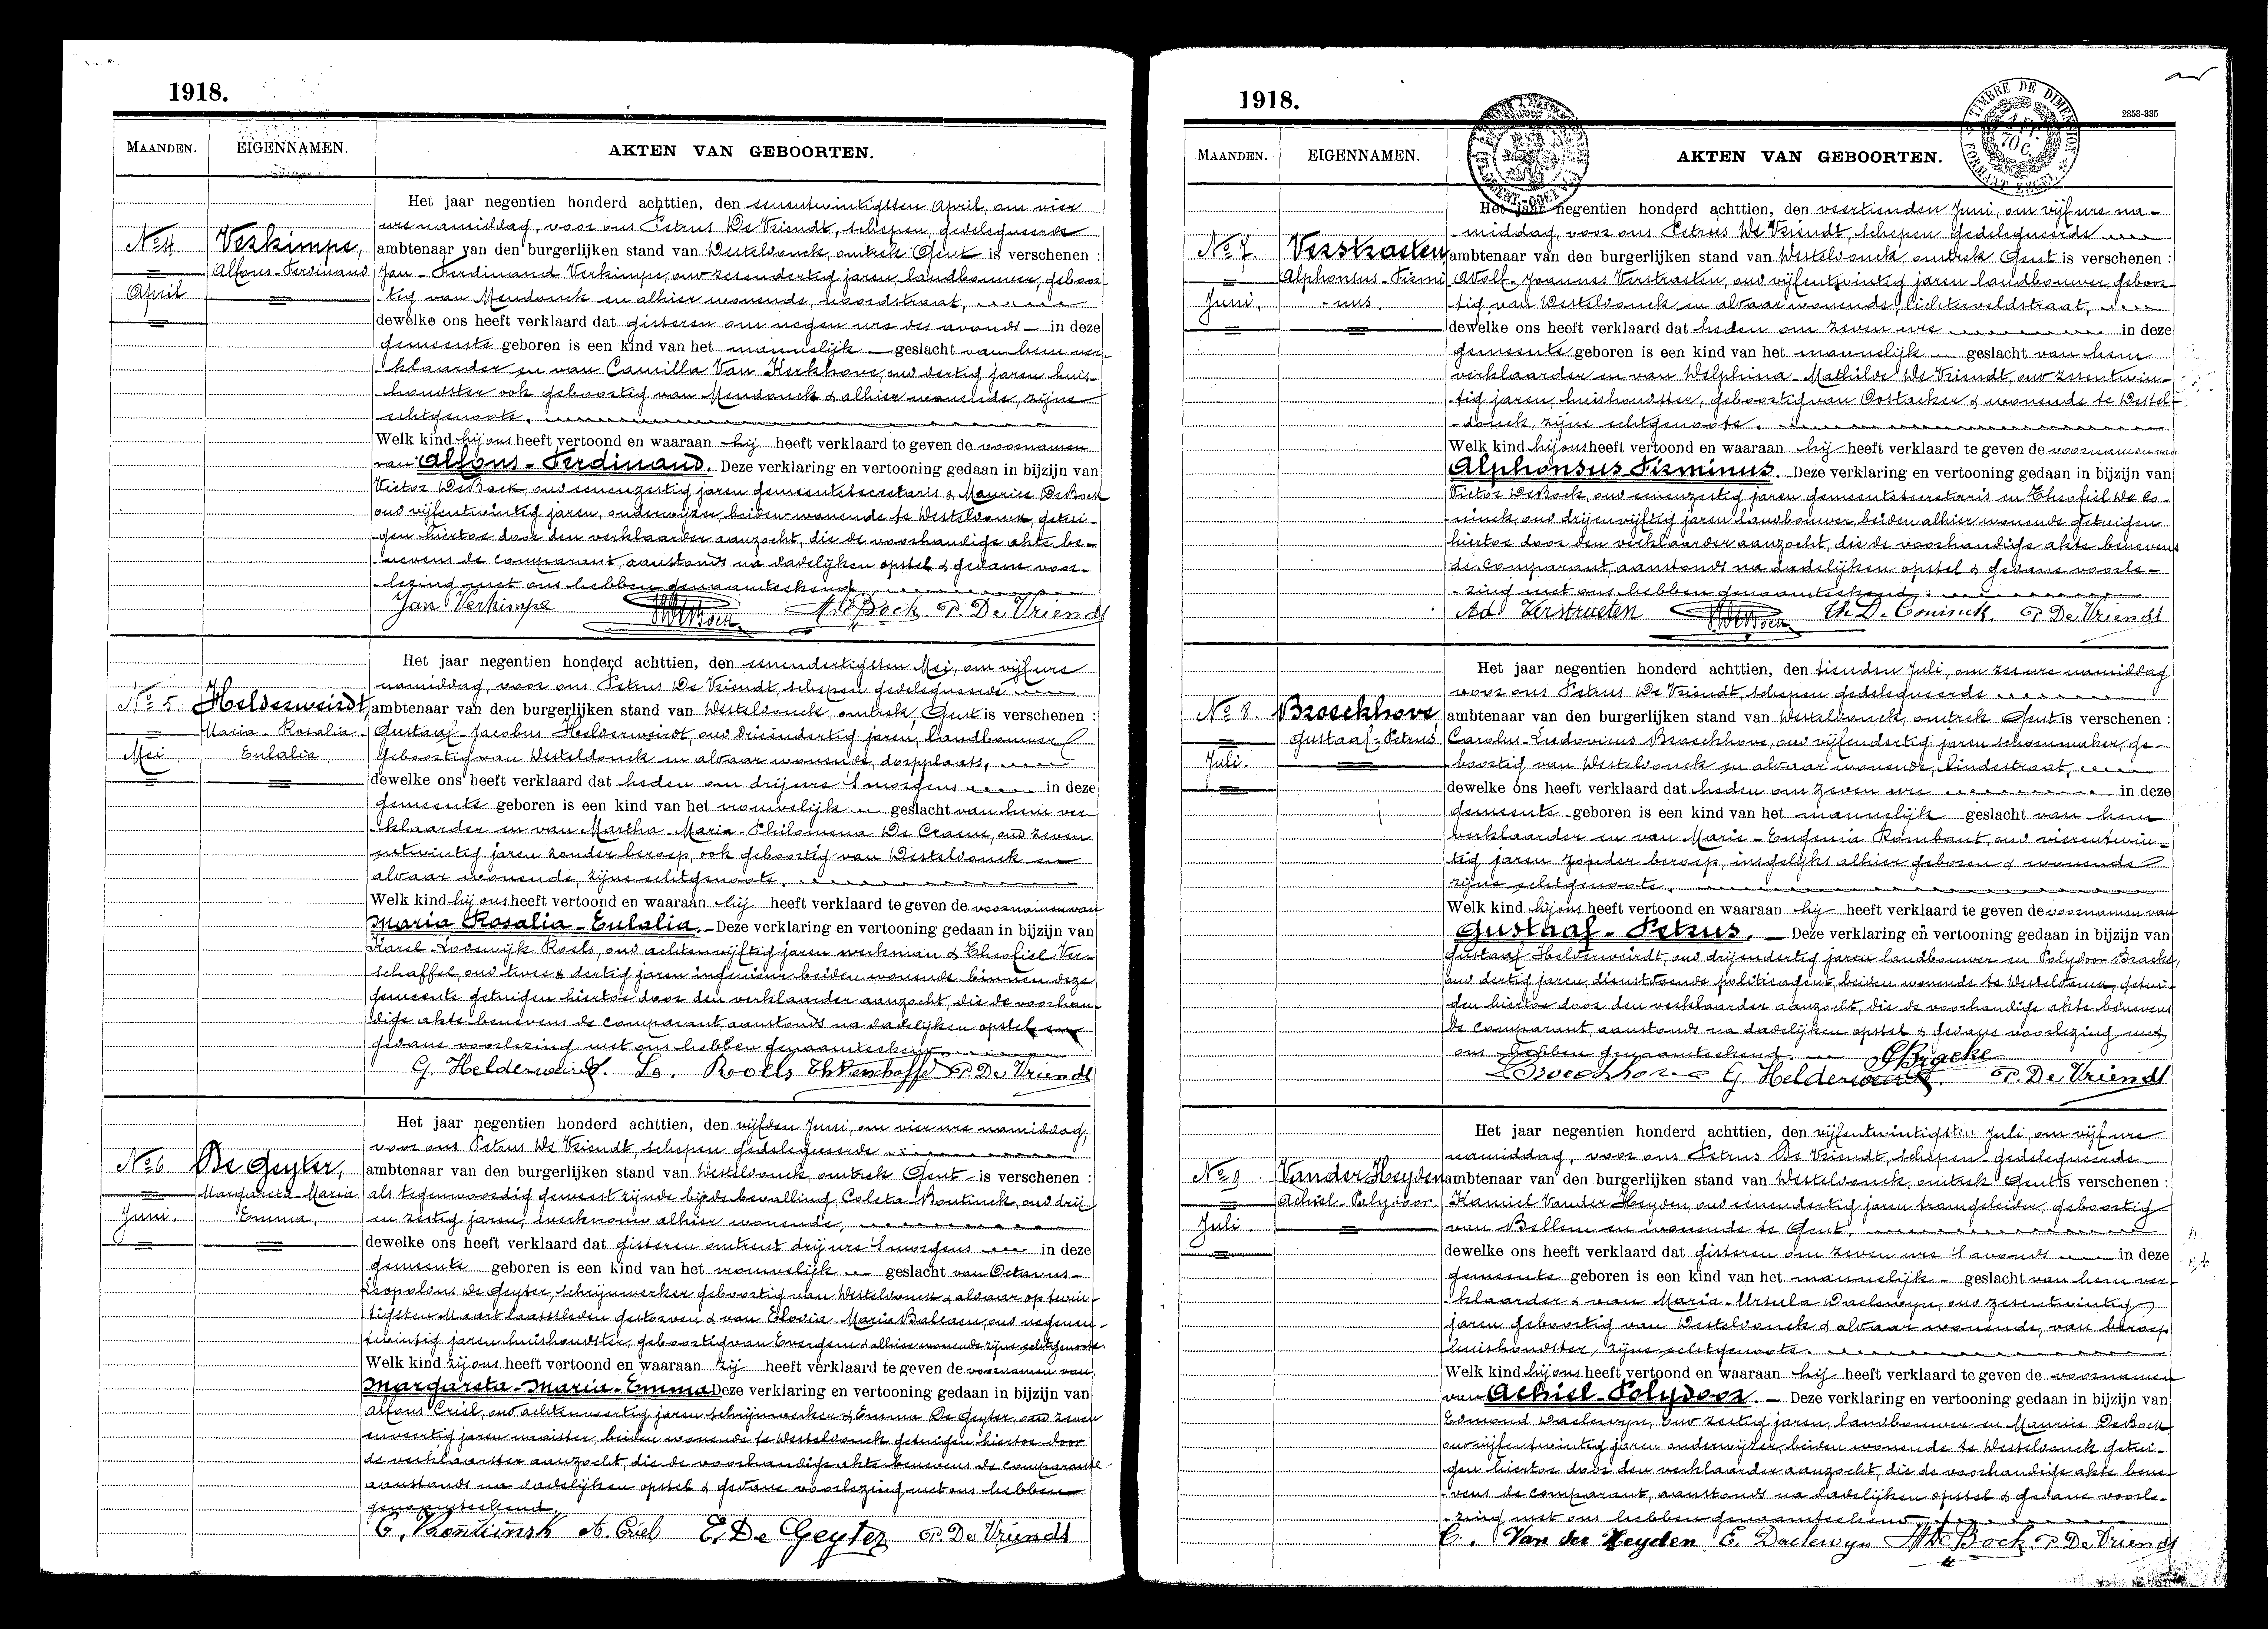 1918.
MAANDEN.
EIGENNAMEN.
AKTEN VAN GEBOORTEN.
No 4
April
Verkimpe,
Alfons-Ferdinand
Het jaar negentien honderd achttien, den zevenentwintigsten April, om vier
ure namiddag, voor ons Petrus De Vriendt, schepen, gedelegueerde
ambtenaar van den burgerlijken stand van Westeldonck, omtrek Gent is verschenen :
Jan-Ferdinand Verkimpe, oud zesendertig jaren, landbouwer, geboor-
tig van Mendonck en alhier wonende, noordstraat,
dewelke ons heeft verklaard dat gisteren om negen ure des avonds in deze
gemeente geboren is een kind van het mannelijk geslacht van hem ver-
klaarder en van Camilla Van Kerkhove, oud dertig jaren, huis-
houdster ook geboortig van Mendonck & alhier wonende, zijne
echtgenoote.
Welk kind hij ons heeft vertoond en waaraan hij heeft verklaard te geven de voornamen
van Alfons-Ferdinand. Deze verklaring en vertooning gedaan in bijzijn van
Victor De Bock, oud zevenzestig jaren gemeentesecretaris & Maurice De Bock
oud vijfentwintig jaren, onderwijzer, beiden wonende te Westeldonck, getui-
gen hiertoe door den verklaarder aanzocht, die de voorhandige akte be-
nevens de comparant, aanstonds na dadelijken opstel & gedane voor-
lezing met ons hebben genaamteekend.
Jan Verkimpe
V De Bock
M. De Bock
P. De Vriendt
No 5
Mei
Helderweirdt,
Maria-Rosalia-
Eulalia
Het jaar negentien honderd achttien, den zevendertigsten Mei, om vijf ure
namiddag, voor ons Petrus De Vriendt, schepen gedelegueerde
ambtenaar van den burgerlijken stand van Westeldonck, omtrek Gent is verschenen :
Gustaaf-Jacobus Helderweirdt, oud drieëndertig jaren, landbouwer
geboortig van Westeldonck en aldaar wonende, dorpplaats,
dewelke ons heeft verklaard dat heden om drij ure 's morgens in deze
gemeente geboren is een kind van het vrouwelijk geslacht van hem ver-
klaarder en van Martha-Maria-Philomena De Craene, oud zeven
entwintig jaren zonder beroep, ook geboortig van Westeldonck en
aldaar wonende, zijne echtgenoote.
Welk kind hij ons heeft vertoond en waaraan hij heeft verklaard te geven de voornamen van
Maria Rosalia-Eulalia. Deze verklaring en vertooning gedaan in bijzijn van
Karel-Lodewijk Roels, oud achtenvijftig jaren werkman & Theofiel Ver-
schaffel, oud twee & dertig jaren ingenieur beiden wonende binnen deze
gemeente getuigen hiertoe door den verklaarder aanzocht, die de voorhan-
dige akte benevens de comparant, aanstonds na dadelijken opstel en
gedane voorlezing met ons hebben genaamteekend.
G. Helderweirdt.
Lo. Roels
Th Verschaffel
P. De Vriendt
No 6
Juni.
De Geyter,
Margareta-Maria
Emma.
Het jaar negentien honderd achttien, den vijfden Juni, om vier ure namiddag,
voor ons Petrus De Vriendt, schepen gedelegueerde
ambtenaar van den burgerlijken stand van Westeldonck, omtrek Gent is verschenen :
als tegenwoordig geweest zijnde bij de bevalling, Coleta Bontinck, oud drij
en zestig jaren, werkvrouw alhier wonende,
dewelke ons heeft verklaard dat gisteren omtrent drij ure 's morgens in deze
gemeente geboren is een kind van het vrouwelijk geslacht van Octavus-
Leopoldus De Geyter, schrijnwerker geboortig van Westeldonck & aldaar op twin-
tigsten Maart laatstleden gestorven & van Elodia-Maria Balcaen, oud negenen-
twintig jaren huishoudster, geboortig van Evergem & alhier wonende zijne echtgenoote.
Welk kind zij ons heeft vertoond en waaraan zij heeft verklaard te geven de voornamen van
Margareta-Maria-Emma Deze verklaring en vertooning gedaan in bijzijn van
Alfons Criel, oud achtenveertig jaren schrijnwerker & Emma De Geyter, oud zeven
enveertig jaren naaister, beiden wonende te Westeldonck getuigen hiertoe door
de verklaarster aanzocht, die de voorhandige akte benevens de comparante
aanstonds na dadelijken opstel & gedane voorlezing met ons hebben
genaamteekend.
C. Bontinck
A. Criel
E. De Geyter
P. De Vriendt
1918.
2853-335
TIMBRE DE DIMENSION
FORMAAT ZEGEL
70 C.
MAANDEN.
EIGENNAMEN.
AKTEN VAN GEBOORTEN.
No 7.
Juni.
Verstraeten
Alphonsus-Firmi
-nus.
Het jaar negentien honderd achttien, den veertienden Juni, om vijf ure na-
middag, voor ons Petrus De Vriendt, schepen gedelegueerde
ambtenaar van den burgerlijken stand van Westeldonck, omtrek Gent is verschenen :
Adolf-Joannes Verstraeten, oud vijfentwintig jaren landbouwer, geboor-
tig van Westeldonck en aldaar wonende, lichterveldstraat,
dewelke ons heeft verklaard dat heden om zeven ure in deze
gemeente geboren is een kind van het mannelijk geslacht van hem
verklaarder en van Delphina-Mathilde De Vriendt, oud zesentwin-
tig jaren, huishoudster, geboortig van Oostacker & wonende te Westel-
donck, zijne echtgenoote.
Welk kind hij ons heeft vertoond en waaraan hij heeft verklaard te geven de voornamen van
Alphonsus Firminus. Deze verklaring en vertooning gedaan in bijzijn van
Victor De Bock, oud zevenzestig jaren gemeentesecretaris en Theofiel De Co-
ninck, oud drijenvijftig jaren landbouwer, beiden alhier wonende getuigen
hiertoe door den verklaarder aanzocht, die de voorhandige akte benevens
de comparant, aanstonds na dadelijken opstel & gedane voorle-
zing met ons hebben genaamteekend.
Ad Verstraeten
V De Bock
Th. De Coninck.
P. De Vriendt
No 8.
Juli.
Broeckhove
Gustaaf-Petrus
Het jaar negentien honderd achttien, den tienden Juli, om zes ure namiddag
voor ons Petrus De Vriendt, schepen gedelegueerde
ambtenaar van den burgerlijken stand van Westeldonck, omtrek Gent is verschenen :
Carolus-Ludovicus Broeckhove, oud vijfendertig jaren schoenmaker, ge-
boortig van Westeldonck en aldaar wonende, lindestraat,
dewelke ons heeft verklaard dat heden om zeven ure in deze
gemeente geboren is een kind van het mannelijk geslacht van hem
verklaarder en van Marie-Eugenia Rombaut, oud vierentwin-
tig jaren, zonder beroep, insgelijks alhier geboren & wonende
zijne echtgenoote.
Welk kind hij ons heeft vertoond en waaraan hij heeft verklaard te geven de voornamen van
Gustaaf-Petrus. Deze verklaring en vertooning gedaan in bijzijn van
Gustaaf Helderweirdt, oud drijendertig jaren landbouwer en Polydoor Bracke,
oud dertig jaren, dienstdoende politieagent, beiden wonende te Westeldonck, getui-
gen hiertoe door den verklaarder aanzocht, die de voorhandige akte benevens
de comparant, aanstonds na dadelijken opstel & gedane voorlezing met
ons hebben genaamteekend.
P Bracke
Broeckhove
G. Helderweirdt.
P. De Vriendt
No 9
Juli.
Van der Heyden
Achiel-Polydoor.
Het jaar negentien honderd achttien, den vijfentwintigsten Juli, om vijf ure
namiddag, voor ons Petrus De Vriendt, schepen gedelegueerde
ambtenaar van den burgerlijken stand van Westeldonck, omtrek Gent is verschenen :
Kamiel Vander Heyden, oud zevendertig jaren tramgeleider, geboortig
van Bellem en wonende te Gent,
dewelke ons heeft verklaard dat gisteren om zeven ure 's avonds in deze
gemeente geboren is een kind van het mannelijk geslacht van hem ver-
klaarder & van Maria-Ursula Daelewyn, oud zesentwintig
jaren geboortig van Westeldonck & aldaar wonende, van beroep
huishoudster, zijne echtgenoote.
Welk kind hij ons heeft vertoond en waaraan hij heeft verklaard te geven de voornamen
van Achiel-Polydoor. Deze verklaring en vertooning gedaan in bijzijn van
Edmond Daelewyn, oud zestig jaren, landbouwer en Maurice De Bock
oud vijfentwintig jaren onderwijzer, beiden wonende te Westeldonck getui-
gen hiertoe door den verklaarder aanzocht, die de voorhandige akte bene-
vens de comparant, aanstonds na dadelijken opstel & gedane voorle-
zing met ons hebben genaamteekend
C. Van der Heyden
E. Daelewyn
M De Bock
P. De Vriendt